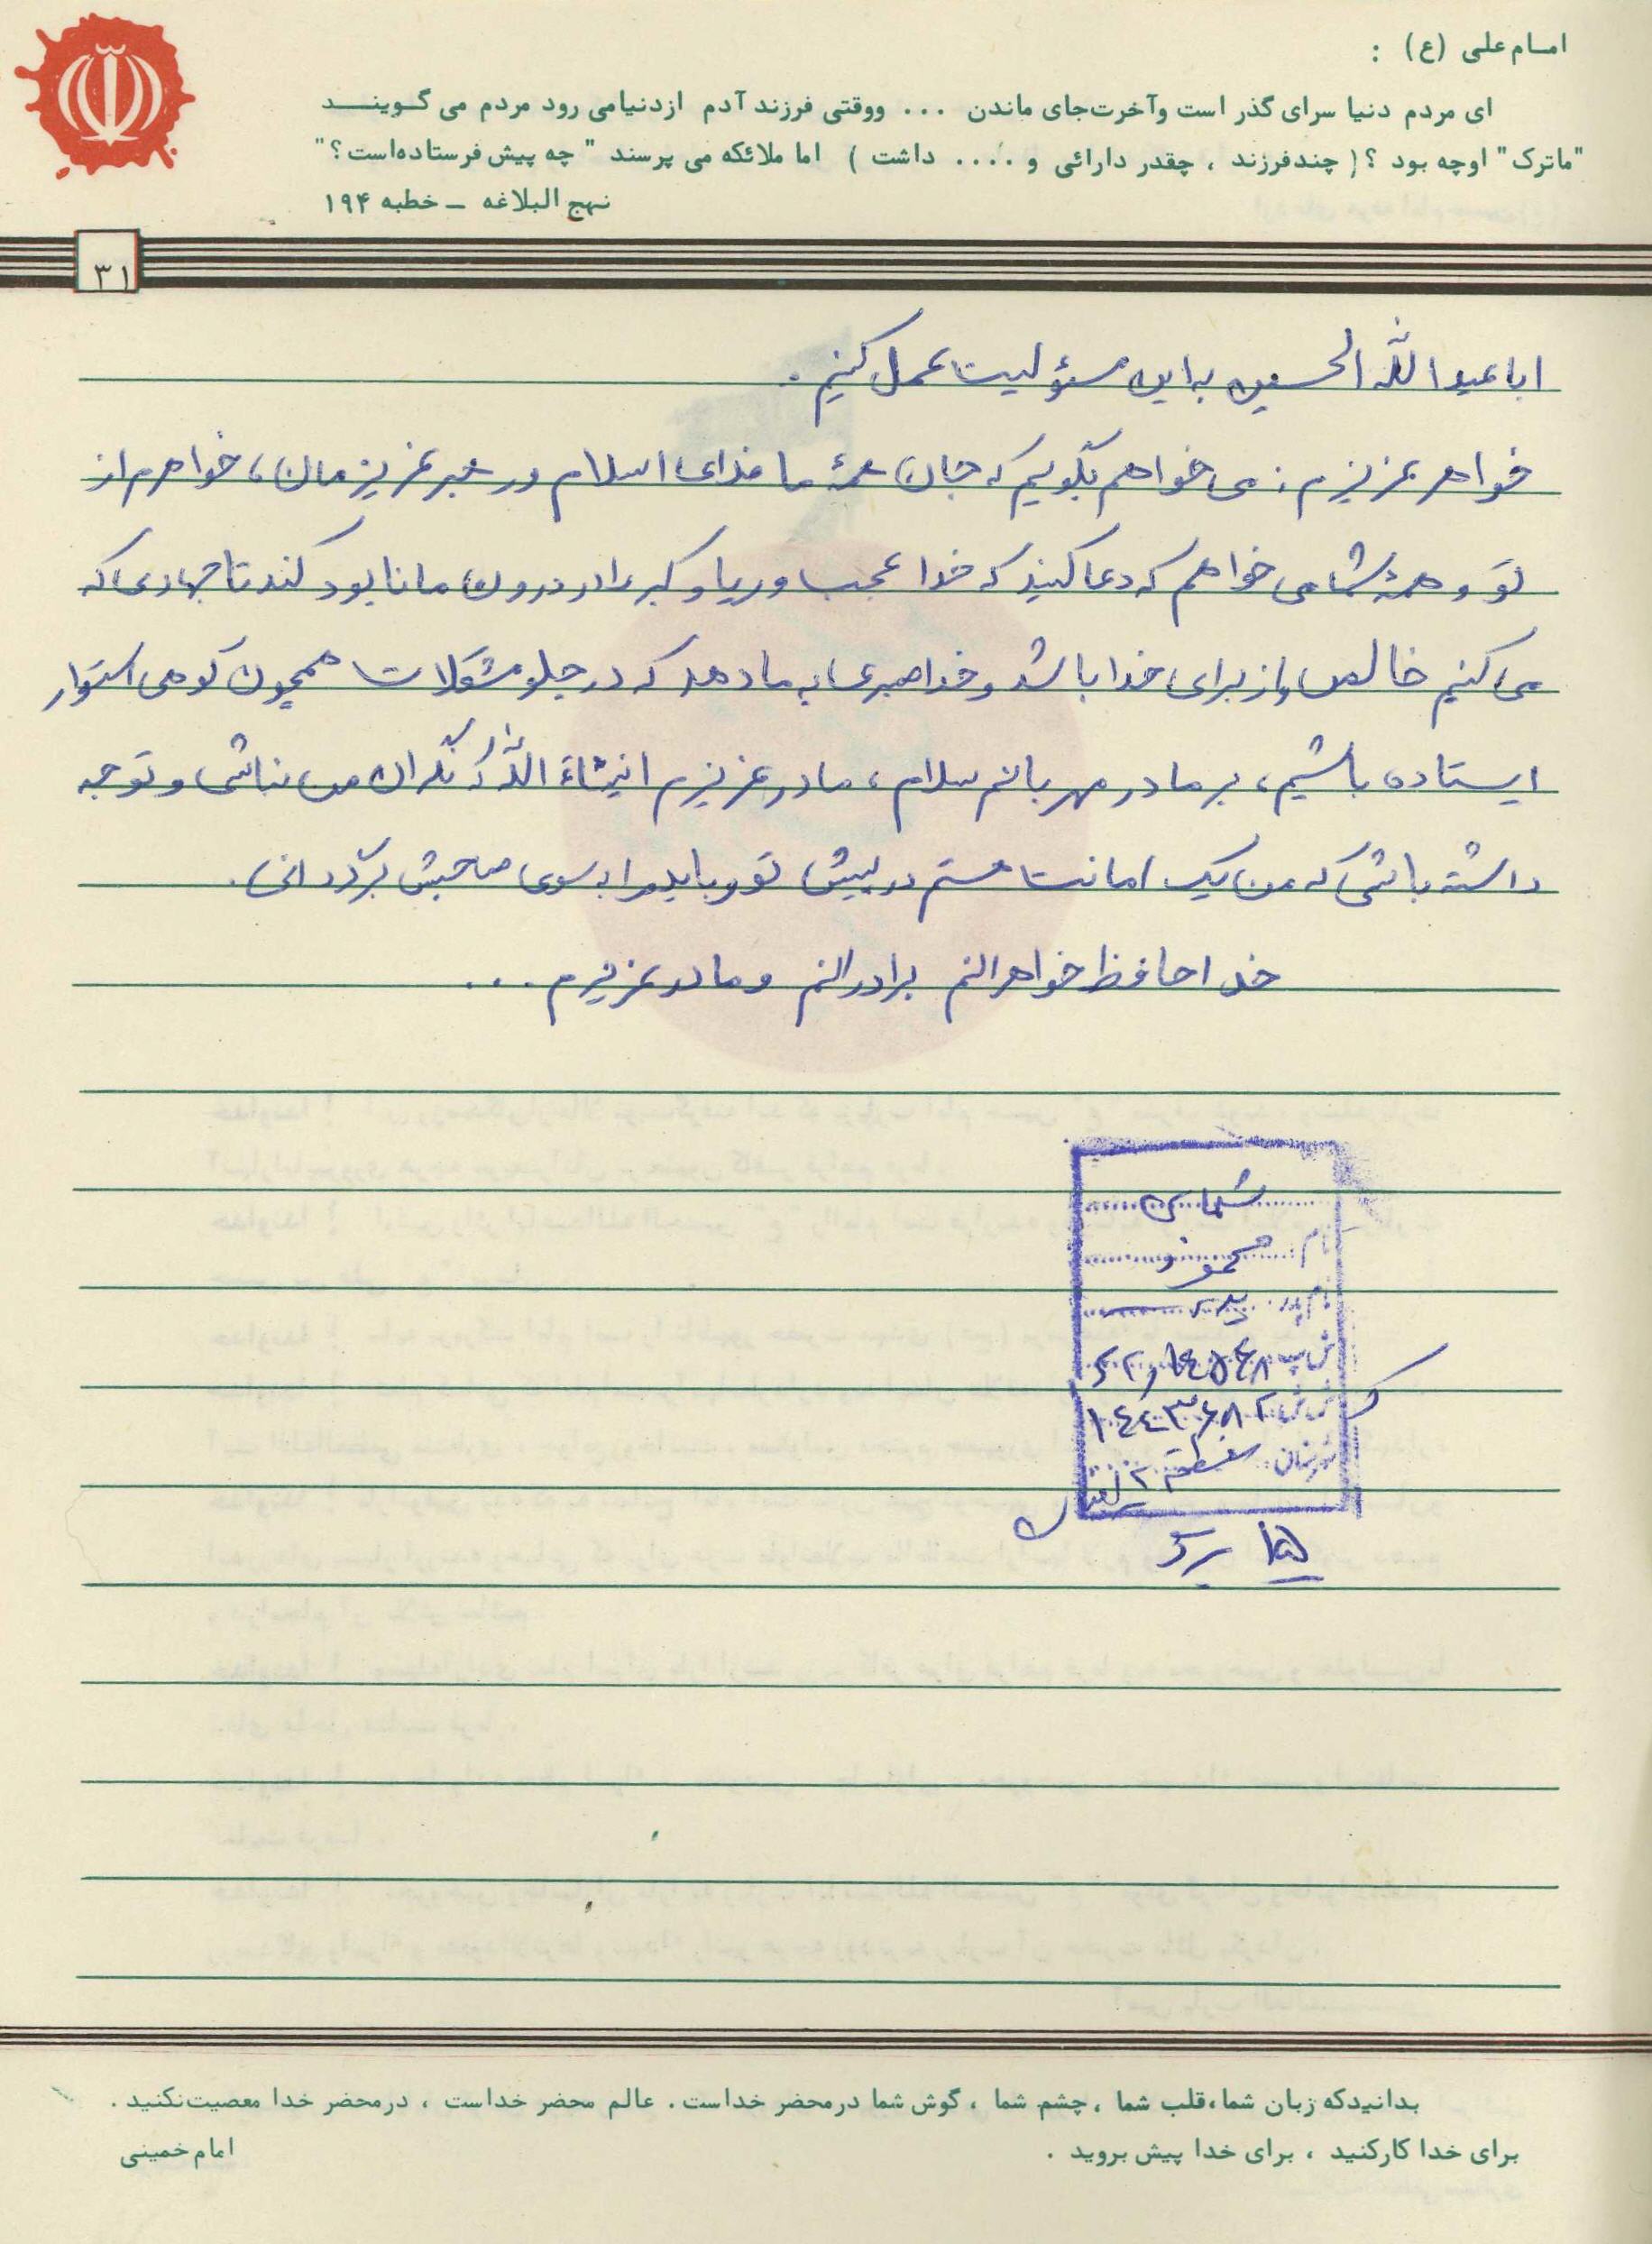 امام علی (ع) :
ای مردم دنیا سرای گذر است وآخرت‌جای ماندن ... ووقتی فرزند آدم ازدنیامی رود مردم می گویند
"ماترک" اوچه بود ؟ ( چندفرزند ، چقدر دارائی و .... داشت ) اما ملائکه می پرسند " چه پیش فرستاده‌است ؟ "
نهج البلاغه – خطبه ۱۹۴
۳۱
اباعبدالله الحسین به این مسئولیت عمل کنیم .
خواهر عزیزم : می خواهم بگویم که جان همهٔ ما فدای اسلام و رهبر عزیزمان ، خواهرم از
تو و همهٔ شما می خواهم که دعا کنید که خدا عجب و ریا و کبر را در درون ما نابود کند تا جهادی که
می کنیم خالص و از برای خدا باشد و خدا صبری به ما دهد که در جلو مشکلات همچون کوهی استوار
ایستاده باشیم ، بر مادر مهربانم سلام ، مادر عزیزم انیشاء الله که نگران من نباشی و توجه
داشته باشی که من یک امانت هستم در پیش تو و باید مرا به سوی صاحبش برگردانی .
خدا حافظ خواهرانم برادرانم و مادر عزیزم ...
نام : محمود
نام پدر
ش ش ۱۴۴۳۶۸۲
شهرستان
۱۵ برگ
بدانیدکه زبان شما،قلب شما ، چشم شما ، گوش شما درمحضر خداست . عالم محضر خداست ، درمحضر خدا معصیت‌نکنید .
برای خدا کارکنید ، برای خدا پیش بروید .
امام خمینی